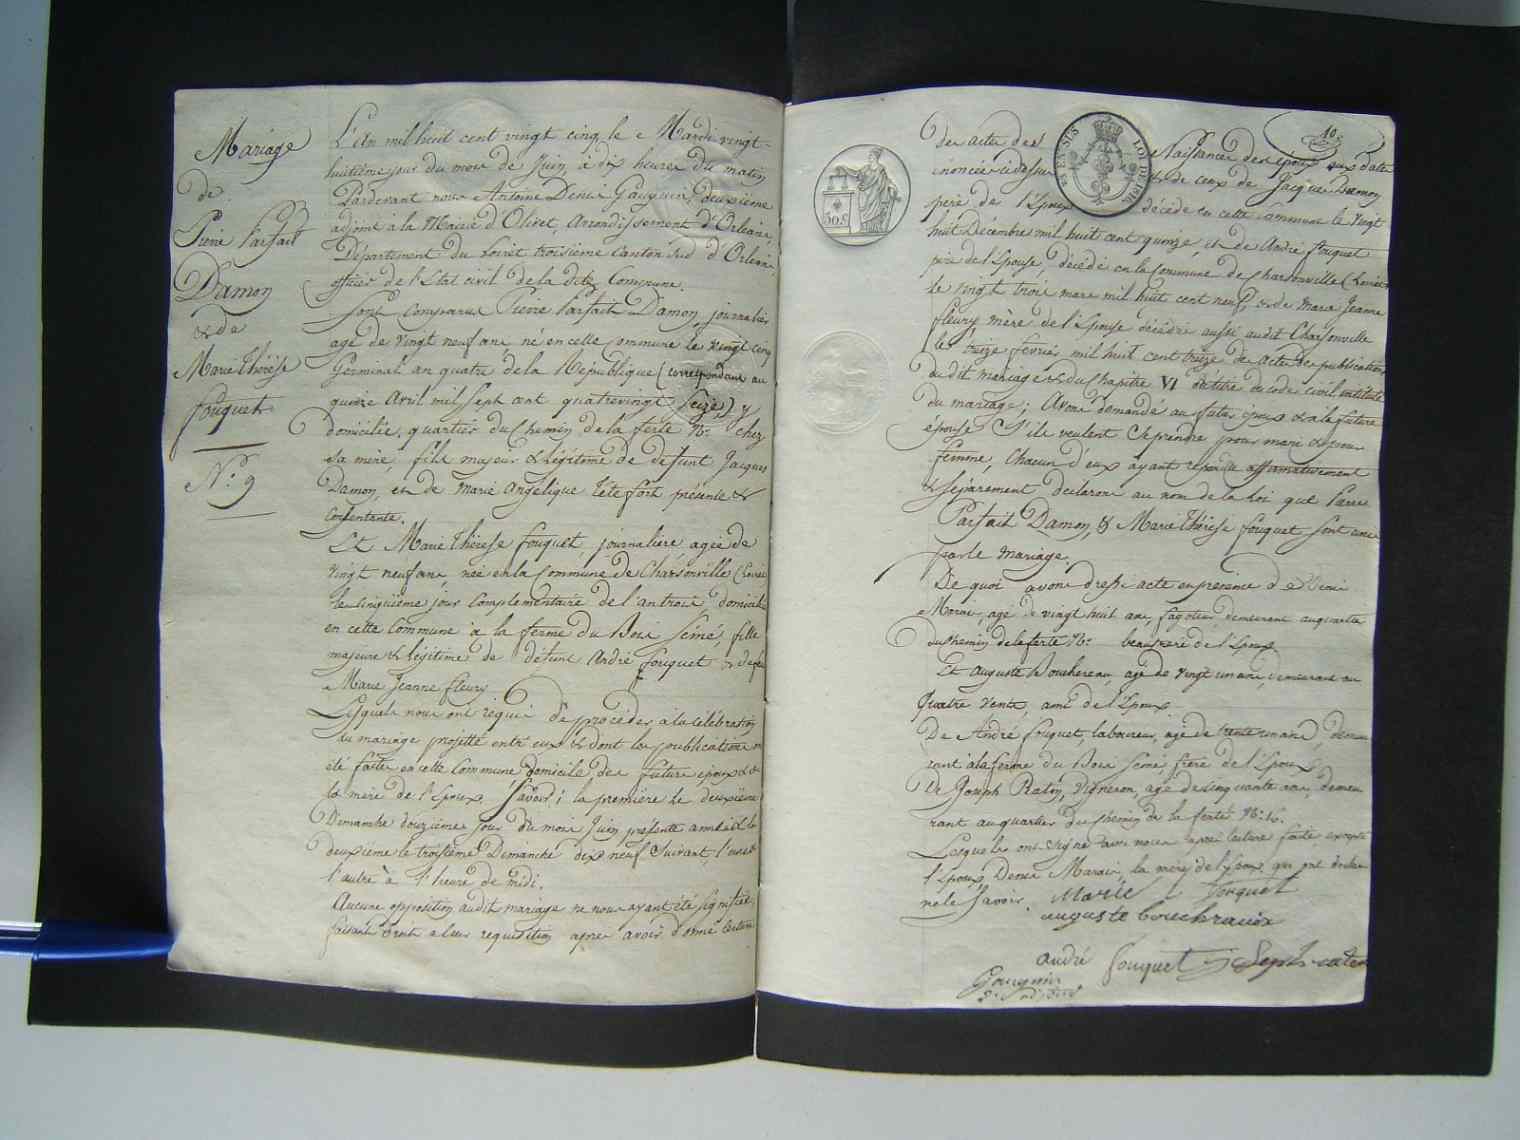 Mariage
de
Pierre Parfait
Damon
& de
Marie Thérèse
fouquet
N.o 9
L'an mil huit cent vingt cinq le Mardi vingt-
huitième jour du mois de Juin, à dix heures du matin
Pardevant nous Antoine Denis Gauguin, deuxième
adjoint à la Mairie d'Olivet, Arrondissement d'Orléans,
Département du Loiret troisième Canton Sud d'Orléans,
officier de l'Etat civil de la dite Commune.
Sont comparus Pierre Parfait Damon, journalier,
agé de vingt neuf ans, né en cette commune le vingt cinq
Germinal an quatre de la République (correspondant au
quinze Avril mil sept cent quatrevingt seize,) y
domicilié, quartier du Chemin de la ferté N.o chez
sa mère, fils majeur & légitime de défunt Jacques
Damon, et de Marie Angélique Tetefort présente &
consentante.
Et Marie Thérèse fouquet, journalière agée de
vingt neuf ans née en la Commune de Charsonville (Loiret
le cinquième jour complémentaire de l'an trois, domiciliée
en cette Commune à la ferme du Bois Semé, fille
majeure & légitime de défunt André fouquet & de feu
Marie Jeanne fleury.
Lesquels nous ont requis de procéder à la célébration
du mariage projetté entr'eux & dont les publications ont
été faites en cette Commune domicile des futurs époux & de
la mère de l'Epoux, Savoir; la première le deuxième
Dimanche douzième jour du mois Juin présente année & la
deuxième le troisième Dimanche dix neuf Suivant, l'une &
l'autre à l'heure de midi.
Aucune opposition audit mariage ne nous ayant été signifiée,
faisant droit à leur requisition, après avoir donné lecture
10
des actes de Naissance des époux aux dates
énoncées ci dessus & de ceux de Jacques Damon
père de l'Epoux décédé en cette Commune le vingt
huit Décembre mil huit cent quinze, et de André fouquet
père de l'Epouse, décédé en la Commune de Charsonville (Loiret)
le vingt trois mars mil huit cent neuf, & de Marie Jeanne
fleury mère de l'Epouse décédée aussi audit Charsonville
le treize février mil huit cent treize des actes de publications
dudit mariage & du Chapitre VI du titre du code civil intitulé
du mariage; Avons demandé au futur époux & à la future
épouse S'ils veulent se prendre pour mari & pour
femme, Chacun d'eux ayant répondu affirmativement
& séparément déclarons au nom de la Loi que Pierre
Parfait Damon, & Marie Thérèse fouquet sont unis
par le mariage.
De quoi avons dressé acte en présence de Denis
Marais, agé de vingt huit ans, fagotier demeurant au quartier
du chemin de la ferté N.o beaufrère de l'Epoux
Et Auguste Bouchereau, agé de vingt un ans, demeurant au
Quatre Vents, ami de l'Epoux
De André fouquet, laboureur, agé de trente un ans, demeu
rant à la ferme du Bois Semé, frère de l'Epouse
De Joseph Raton, vigneron, agé de cinquante ans, demeu
rant au quartier du chemin de la ferté N.o 6.
Lesquels ont signé avec nous après lecture faite excepté
l'Epoux, Denis Marais, la mère de l'Epoux qui ont déclaré
ne le savoir. Marie t fouquet
auguste bouchraux
André fouquet
Gauguin
EN SUS LOI DE 1816
50.C